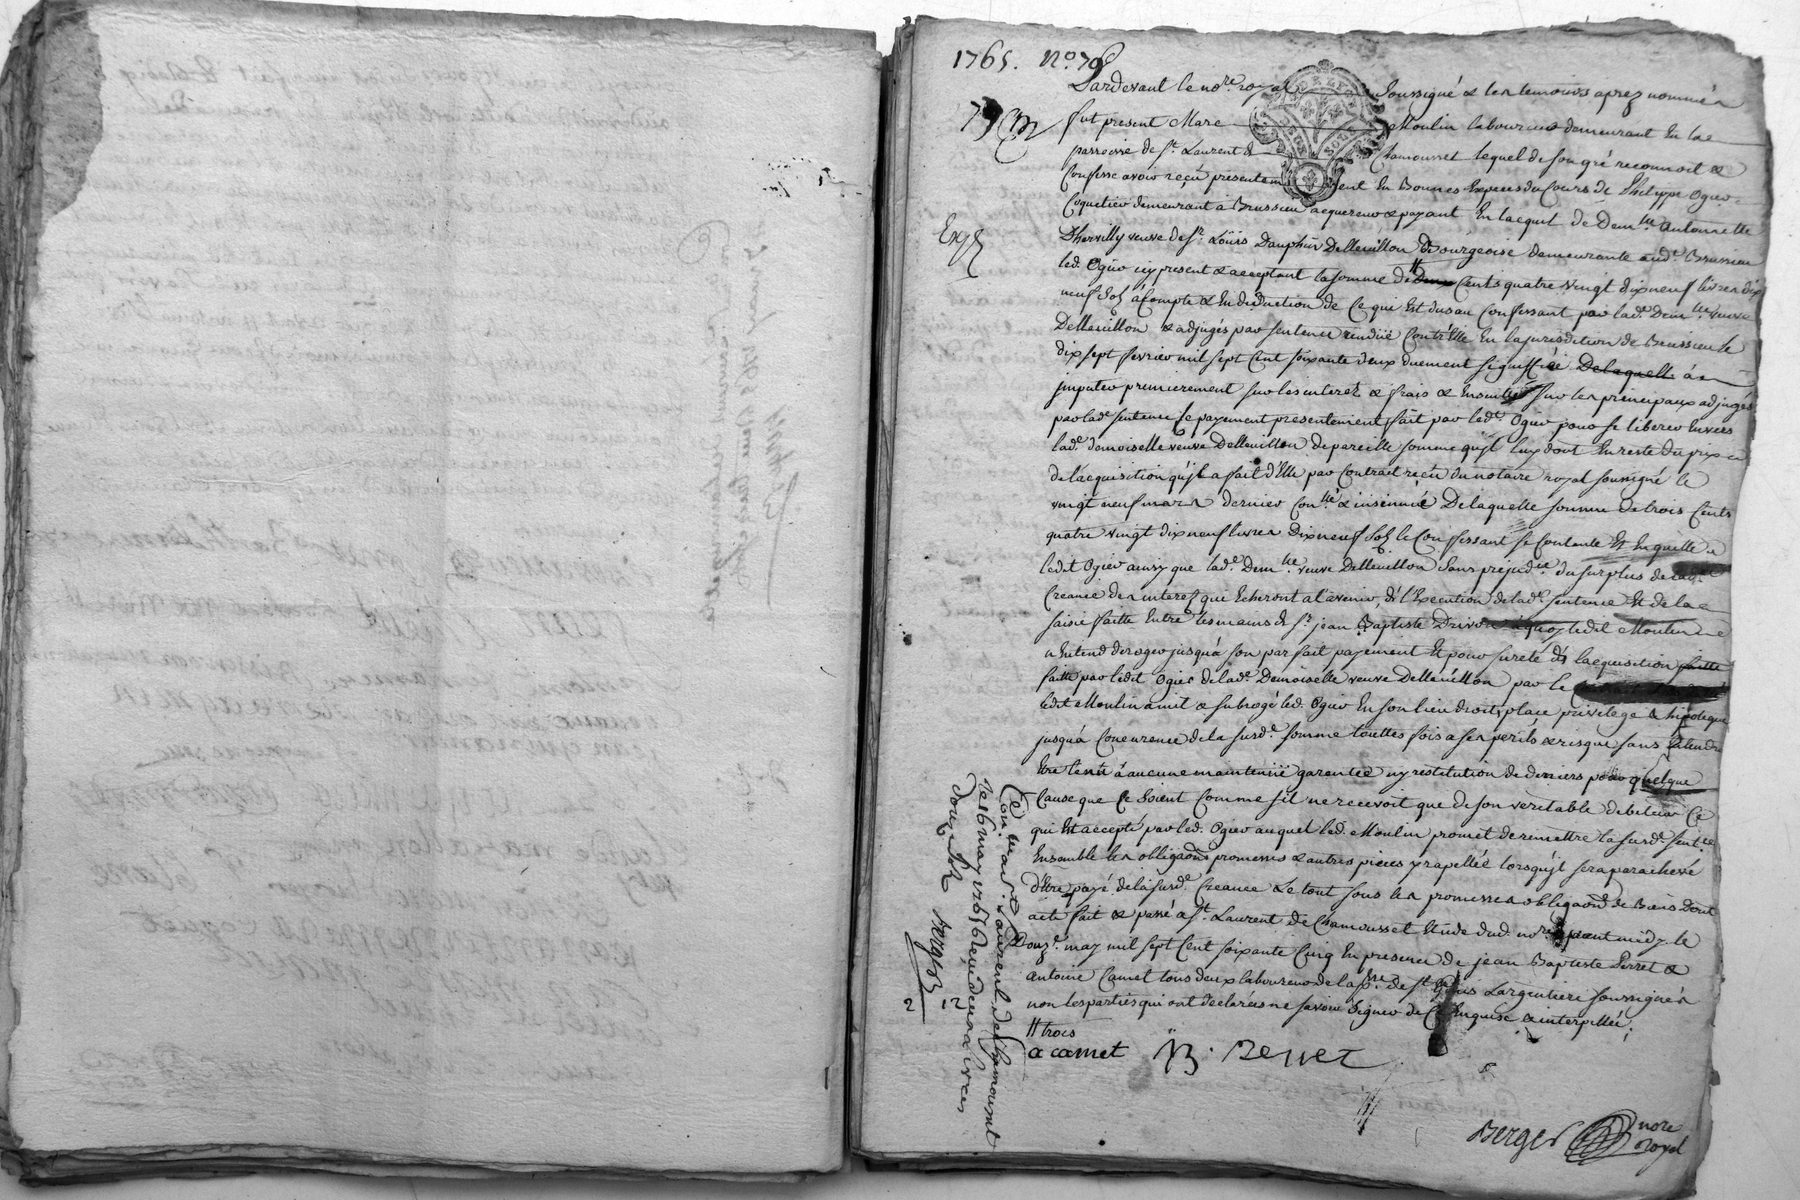 1765. N.o 79
Pardevant le no.re royal soussigné & les temoins aprez nommés
fut present Marc Moulin laboureur demeurant En la
parroisse de st. Laurent de Chamousset lequel de son gré reconnoit &
Confesse avoir reçu presentement En Bonnes Especes du Cours de Philippe Ogier
Coquetier demeurant à Brussieu acquereur & payant En l'acquit de Dem.lle Antoinette
D'hervilly veuve de sr. Loüis Dauphin Delleuillon Bourgeoise demeurante aud. Brussieu
led. Ogier icy present & acceptant la somme de deux Cents quatre vingt dix neuf livres dix
neuf sols à Compte & En deduction de Ce qui Est dû au Confessant par lad.e Dem.lle veuve
Delleuillon & adjugés par sentence rendüe Contr'Elle En la jurisdition de Brussieu le
dix sept fevrier mil sept Cent soixante deux duement signiffiée De laquelle à
jmputer premierement sur les interets & frais & Ensuitte sur les principaux adjugés
par lad.e sentence le payement presentement fait par led.t Ogier pour se liberer Envers
lad.e demoiselle veuve Delleuillon de pareille somme qu'jl luy doit En reste du prix
de l'acquisition qu'jl a fait d'Elle par Contrat reçu du notaire royal soussigné le
vingt neuf mars dernier Con.llé & insinüé De laquelle somme de trois Cents
quatre vingt dix neuf livres Dix neuf sols le Confessant se Contente Et En quitte
ledit Ogier ainsy que lad.e Dem.lle veuve Delleuillon Sans prejud.ce du surplus de lad.e
Creance des interets qui Echeront a l'avenir, de l'Execution de lad.e sentence Et de la
saisie faitte Entre les mains de sr. jean Baptiste Drivon à quoy ledit Moulin ne
n'Entend deroger jusqu'à son parfait payement Et pour sureté de l'acquisition faitte
faitte par ledit Ogier de lad.e Demoiselle veuve Delleuillon par le
ledit Moulin a mit & subrogé led. Ogier En son lieu droit, place privilege & hipoteque
jusqu'à Concurence de la susd.e somme touttes fois à ses perils & risque sans Entendre
Etre tenu à aucune maintenüe garentie ny restitution de deniers pour quelque
Cause que Ce Soient Comme s'il ne recevoit que de son veritable debiteur Ce
qui Est accepté par led. Ogier auquel led. Moulin promet de remettre la susd.e sent.ce
Ensemble les obligaons promesses & autres pieces y rapellée lorsqu'jl sera parachevé
d'Etre payé de la susd.e Creance Le tout sous les promesses obligaons de Biens Dont
acte fait & passé à st. Laurent de Chamousset Etude dud. no.re avant midy le
Douz.e may mil sept Cent soixante Cinq En presence de jean Baptiste Perret &
antoine Camet tous deux laboureurs de la p.sse de st Genis Largentiere soussignés
non les parties qui ont declarées ne savoir signer de Ce Enquise & interpellée;
// trois
a camet JB. Perret
Berger no.re royal
Exp.é
Con. a St. Laurent de Chamousset
le 16 may 1765 Reçu deux livres
douze sols Berger
2 12